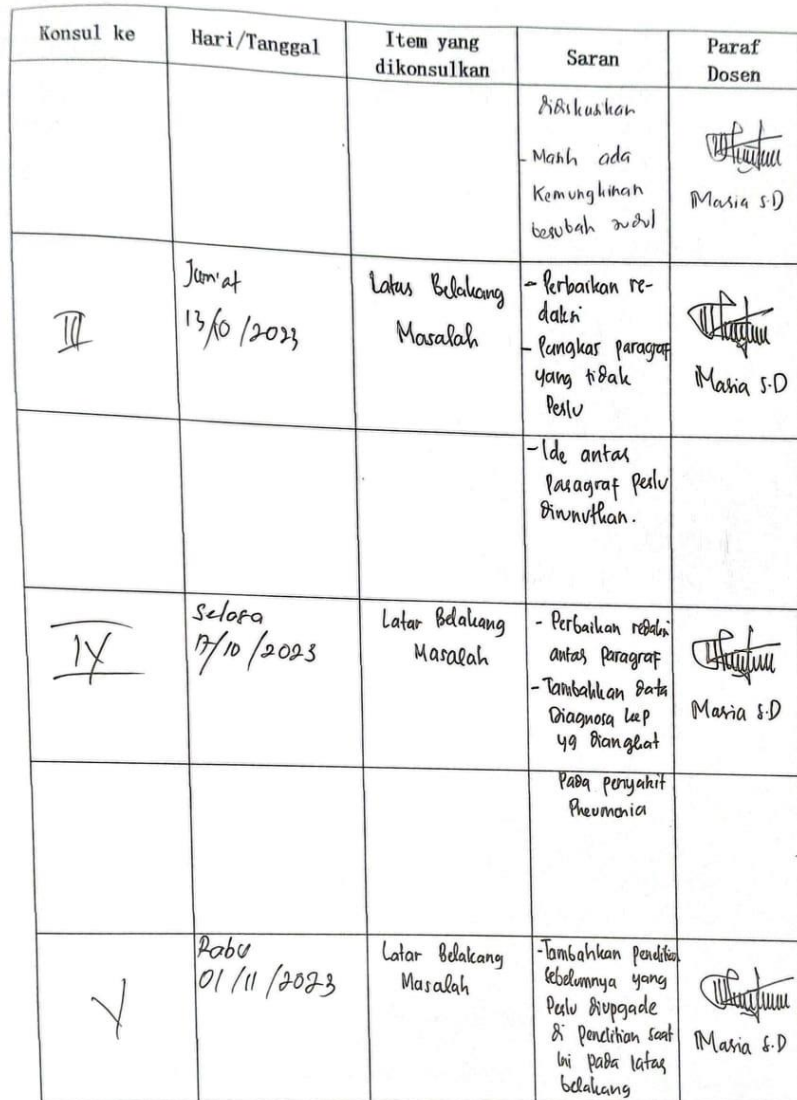 Konsul ke
Hari/Tanggal
Item yang
dikonsulkan
Saran
Paraf
Dosen
didiskusikan
- Masih ada
Kemungkinan
berubah judul
Maria S.D
III
Jum'at
13/10/2023
Latar Belakang
Masalah
- Perbaikan re-
daksi
- Pangkas paragraf
yang tidak
Perlu
Maria S.D
- Ide antar
Paragraf Perlu
dirunutkan.
IV
Selasa
17/10/2023
Latar Belakang
Masalah
- Perbaikan redaksi
antar Paragraf
- Tambahkan data
Diagnosa kep
yg diangkat
Maria S.D
Pada penyakit
Pneumonia
V
Rabu
01/11/2023
Latar Belakang
Masalah
- Tambahkan Penelitian
Sebelumnya yang
Perlu diupgade
di Penelitian saat
ini pada latar
belakang
Maria S.D